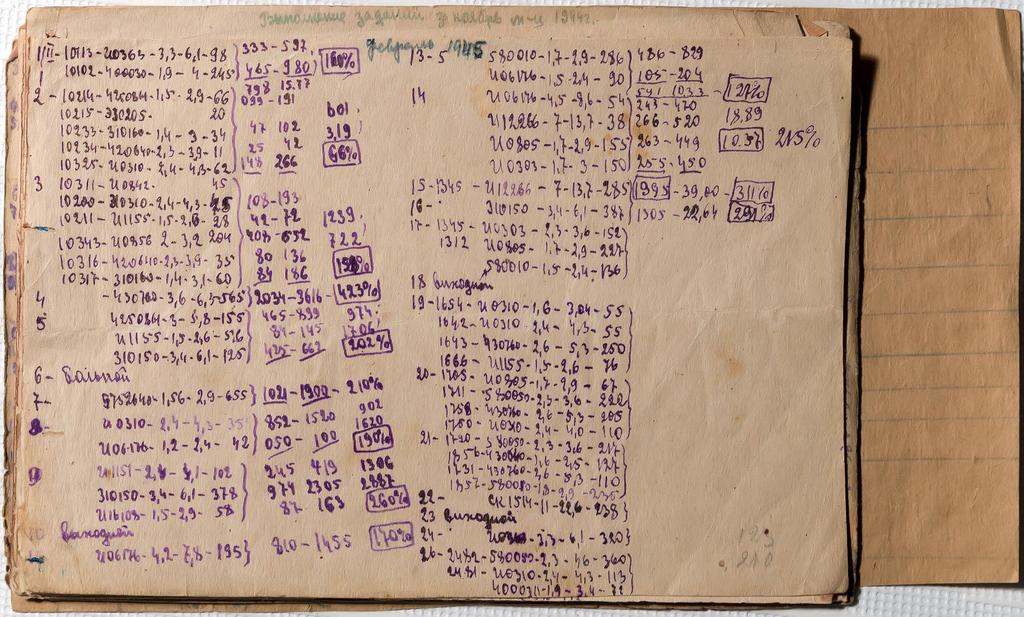 Выполнение заданий за ноябрь м-ц 1944г.
февраль 1945
1/II-10113-И0363-3,3-6,1-98 } 333-597,
1 10102-400030-1,9-4-245 465-980 160%
798 15.77
2-10214-425084-1,5-2,9-66 099-191
10215-330205- 20 601
10233-310160-1,4-3-34 47 102 3,19
10234-420640-2,3-39-11 25 42 66%
10325-И0310-2,4-4,3-62 148 266
3 10311-И0842. 45
10200-И0310-2,4-4,3-25 108-193
10211-И1155-1,5-2,6-28 42-72 1239
10343-И0856 2-3,2 204 408-652 722
10316-420640-2,3-3,9-35 80 136
10317-310160-1,4-3,1-60 84 186
4 -430760-3,6-6,3-565 } 2034-3616- 423%
5 425084-3-5,8-155 465-899 974
И1155-1,5-2,6-56 84-145 1706
310150-3,4-6,1-125 425-662 202%
6-Больной
7- 9752640-1,56-2,9-655 } 1021-1900-210%
8- И0310-2,4-4,3-35 852-1520 902
И06176-1,2-2,4-42 050-100 1620 190%
9 И1151-2,4-4,1-102 245 419 1306
310150-3,4-6,1-378 974 2305 2887
И16108-1,5-2,9-58 87 163 260%
10 выходной
И06176-4,2-7,8-195 } 810-1455 170%
13-5 580010-1,7-2,9-286 486-829
И06176-1,5-2,4-90 105-204
591 1033 127%
14 И06176-4,5-8,6-54 243-470 18,89
И12266-7-13,7-38 266-520
И0805-1,7-2,9-155 263-449 10.37 215%
И0303-1,7-3-150 255-450
15-1345-И12266-7-13,7-285 1995-39,00- 311%
16- 310150-3,4-6,1-387 1305-22,64
17-1345-И0303-2,3-3,6-152
1312 И0805-1,7-2,9-227
580010-1,5-2,4-136
18 выходной
19-1654-И0310-1,6-3,04-55
1642-И0310-2,4-4,3-55
1643-430760-2,6-5,3-250
1666-И1155-1,5-2,6-76
20-1705-И0805-1,7-2,9-67
1711-580050-2,3-3,6-220
1758-430760-2,6-5,3-205
1760-И0310-2,4-4,0-110
21-1720-580050-2,3-3,6-217
1731-430760-3,6-5,3-110
22- СК1514-11-22,6-238}
23 выходной
24- И0310-3,3-6,1-320}
26-2482-580050-2,3-46-360
2481-И0310-2,4-4,3-113
400031-1,9-3,4-72
123
210